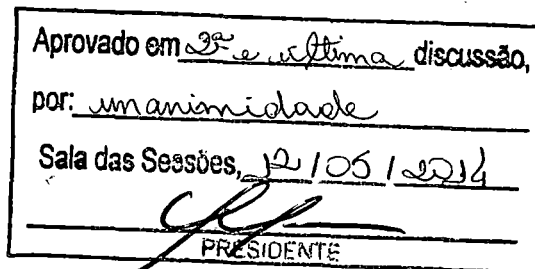 Aprovado em 2ª e última discussão,
por: unanimidade
Sala das Sessões, 12 / 05 / 2014
PRESIDENTE